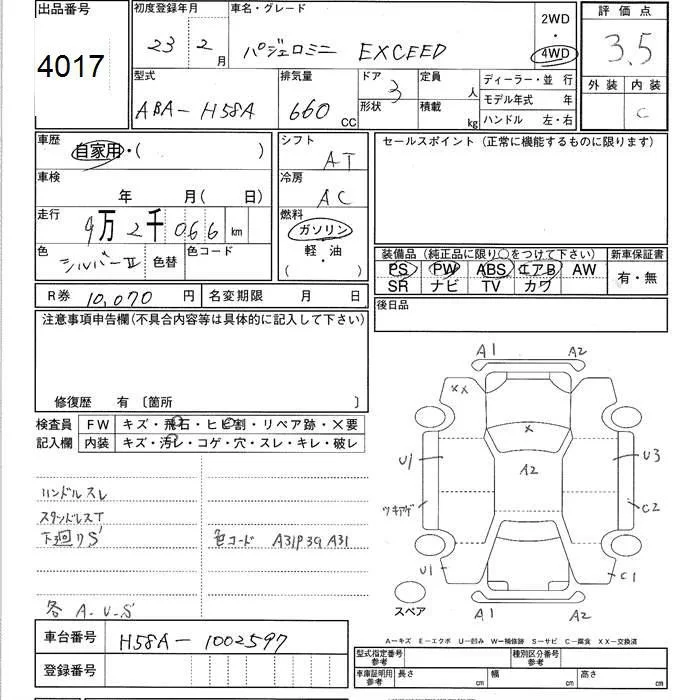 出品番号
4017
初度登録年月
23 2 月
車名・グレード
パジェロミニ EXCEED
2WD
・
4WD
評価点
3.5
外装 内装
C
型式
ABA-H58A
排気量
660 CC
ドア
3
形状
定員
人
積載
kg
ディーラー・並 行
モデル年式 年
ハンドル 左・右
車歴
自家用・( )
車検
年 月( 日)
走行
9万2千066 km
色
シルバーII 色替
色コード
シフト
AT
冷房
AC
燃料
ガソリン
軽・油
( )
セールスポイント(正常に機能するものに限ります)
装備品(純正品に限り○をつけて下さい)
PS PW ABS エアB AW
SR ナビ TV カワ
新車保証書
有・無
R券 10,070 円 名変期限 月 日
後日品
注意事項申告欄(不具合内容等は具体的に記入して下さい)
修復歴 有 〔箇所 〕
検査員
記入欄
FW キズ・飛石・ヒビ割・リペア跡・×要
内装 キズ・汚レ・コゲ・穴・スレ・キレ・破レ
ハンドルスレ
下廻りS
色コード A31P39A31
各 A.U.S
A1 A2
XX
X
A2
U1 U3
ツキアゲ C2
U1 C1
A1 A2
スペア
A-キズ E-エクボ U-凹み W-補修跡 S-サビ C-腐食 XX-交換済
車台番号 H58A-1002597
登録番号
型式指定番号
参考
種別区分番号
参考
車庫証明用
参考
長さ cm 幅 cm 高さ cm